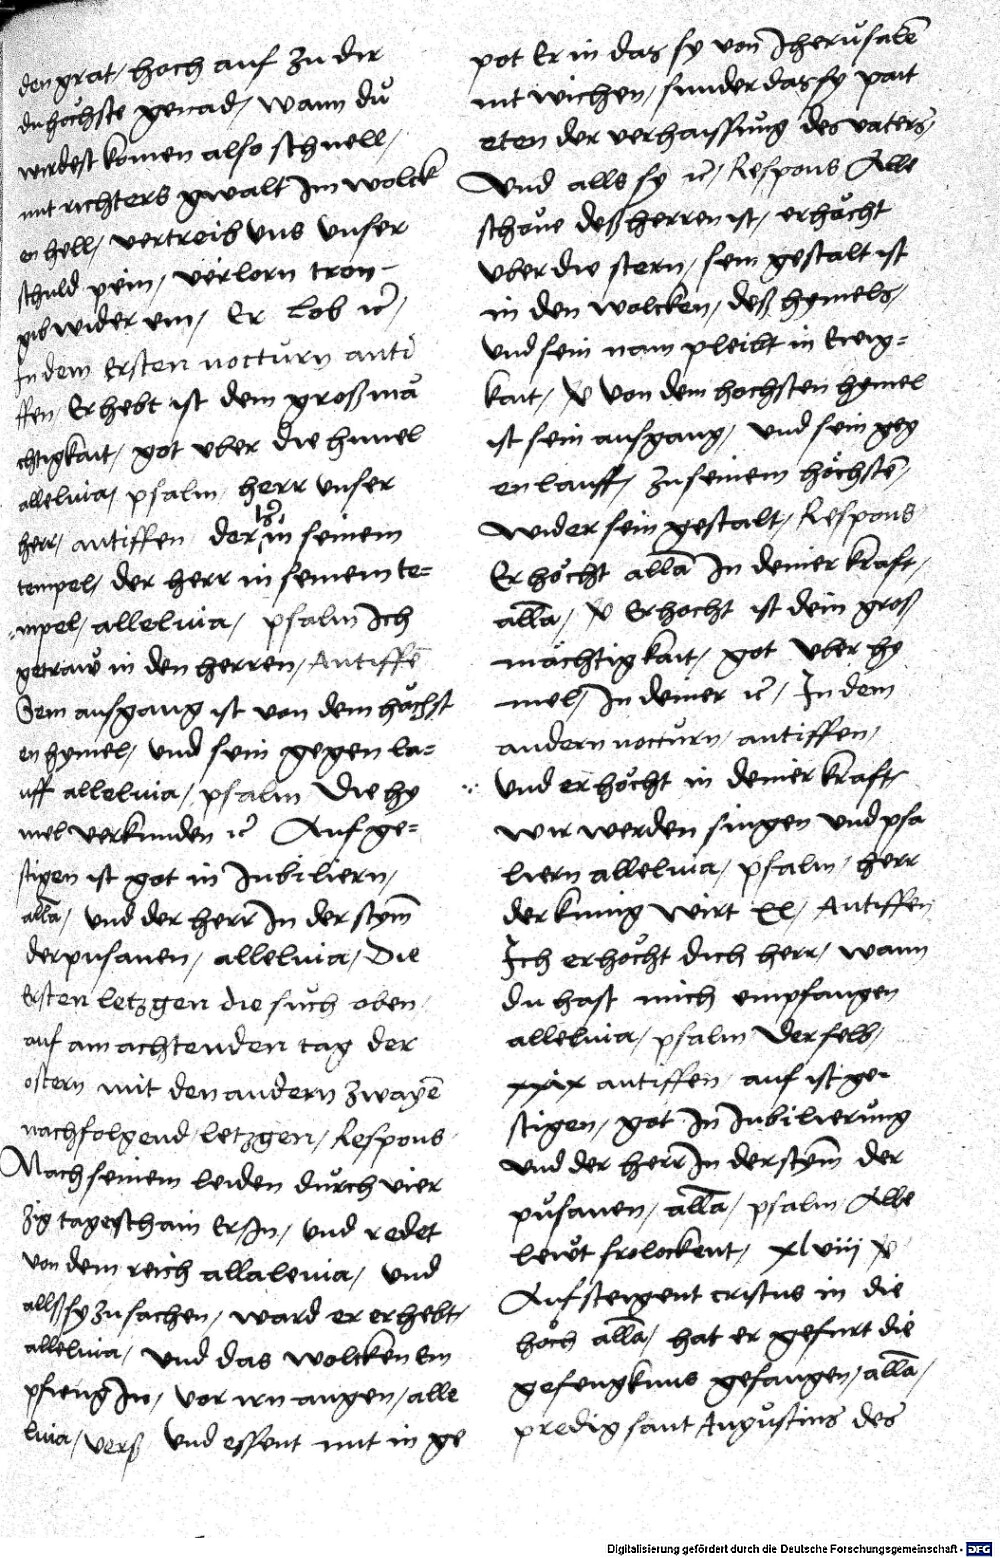 den grat / hoch auf zu dir
du höchste genad / wann dű
wirdest komen also schnell /
mit richters gwalt Im wolck
en hell / vertreib vns vnser
schuld pein / verlorn cron
gib wider ein / Er Lob ꝛc /
In dem Ersten nocturn anti
ffen / Erhebt ist dein großmä
chtigkait / got vber die himel
alleluia / psalm / herr vnser
herr / antiffen der in seinem
tempel / der herr in seinem te=
mpel / alleluia / psalm Ich
getraw in den herren / Antiffē
Sein ausgang ist von dem höchst
en hymel / vnd sein gegen la=
uff alleluia / psalm Die hy
mel verkunden ꝛc Aufge=
stigen ist got in Jubiliern /
alla / vnd der herr In der stym
der pusanen / alleluia / Die
Ersten letzgen die sűch oben /
auf am achtenden tag der
ostern mit den andern zwayē
nachfolgend letzgen / Respons
Nach seinem leiden dűrch vier
zig tage schain Er In / vnd redet
von dem reich allaleuia / vnd
allß sy zusachen / ward er erhebt /
alleluia / vnd das wolcken em
pfieng In / vor irn augen / alle
luia / verß vnd essent mit in ge
pot Er in das sy von Jherűsalē
nit wichen / sunder das sy pait
eten der verhaissűng des vaters /
Vnd alls sy ꝛc / Respons Alle
schöne deß herren ist / erhöcht
vber die stern / sein gestalt ist
in den wolcken / deß hymels /
vnd sein nam pleibt in Ewig=
kait / ℣ von dem hochsten hymel
ist sein ausgang / vnd sein geg
enlauff / zu seinem höchstē /
wider sein gestalt / Respons
Er höcht alla In deiner kraft /
alla / ℣ Erhocht ist dein groß
mächtigkait / got vber hy
mel / In deiner ꝛc / In dem
andern nocturn / antiffen /
vnd erhöcht in deiner kraft /
wir werden singen vnd psa
liern alleluia / psalm / herr
der kunig wirt xx / Antiffen
Ich erhöcht dich herr / wann
du hast mich empfangen
alleluia / psalm Der fels /
xxix antiffen / auf ist ge=
stigen / got In Jubilierűng
vnd der herr In der stym der
pűsanen / alla / psalm Alle
lewt frolockent / xlviij ℣
Aufsteigent cristus in die
höch alla / hat er gefurt die
gefengknus gefangen / alla /
predig sant Augűstins des
Digitalisierung gefördert durch die Deutsche Forschungsgemeinschaft - DFG